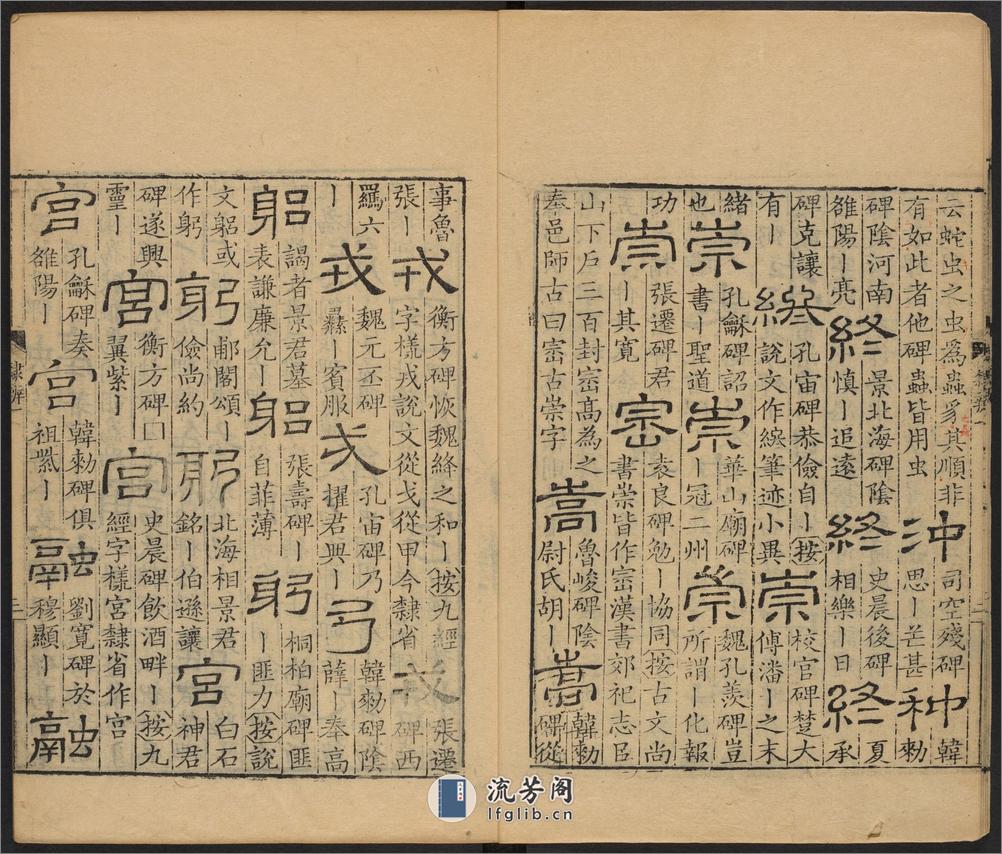 云蛇虫之虫為蟲豸其順非
有如此者他碑蟲皆用虫
沖
司空殘碑
思ー芒甚
种
韓
勑
碑陰河南
雒陽ー亮
終
景北海碑陰
慎ー追遠
終
史晨後碑
相樂ー日
終
夏
承
碑克讓
有ー
終
孔宙碑恭儉自ー按
說文作 筆迹小異
崇
校官碑楚大
傅潘ー之末
緒
也
崇
孔龢碑詔
書ー聖道
崇
華山廟碑
ー冠二州
崇
魏孔羨碑豈
所謂ー化報
功
崇
張遷碑君
ー其寬
崈
袁良碑勉ー協同按古文尚
書崇皆作崈漢書郊祀志臣
山下戶三百封崈高為之
奉邑師古曰崈古崇字
嵩
魯峻碑陰
尉氏胡ー
嵩
韓勑
碑從
隸辨
事魯
張ー
戎
衡方碑恢魏絳之和ー按九經
字樣戎說文從戈從甲今隸省
戎
張遷
碑西
羈六
ー
戎
魏元丕碑
ー賓服
戎
孔宙碑乃
擢君興ー
弓
韓勑碑陰
薛ー奉高
躳
謁者景君墓
表謙廉允ー
躳
張壽碑ー
自菲薄
躬
桐柏廟碑匪
ー匪力按說
文躳或
作躬
躬
郙閣頌ー
儉尚約
躬
北海相景君
銘ー伯遜讓
宮
白石
神君
碑遂興
靈ー
宮
衡方碑□
翼紫ー
宮
史晨碑飲酒畔ー按九
經字樣宮隸省作宮
宮
孔龢碑奏
雒陽ー
宮
韓勑碑俱
祖紫ー
融
劉寬碑於
穆顯ー
融
流芳阁
lfglib.cn